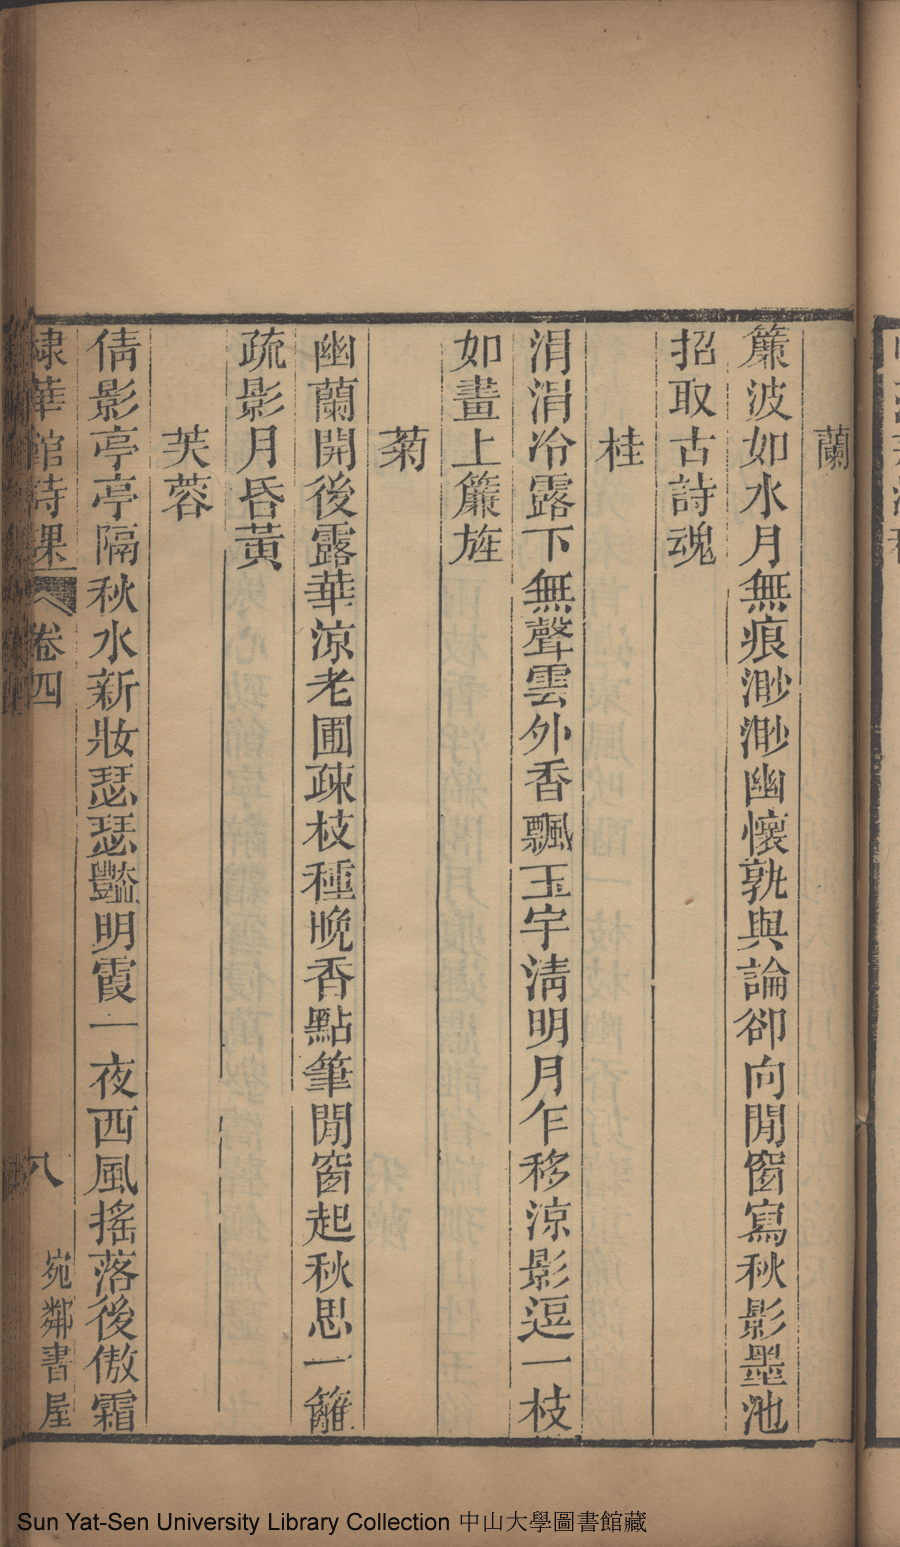 蘭
簾波如水月無痕渺渺幽懷孰與論卻向閒窗寫秋影墨池
招取古詩魂
桂
涓涓冷露下無聲雲外香飄玉宇淸明月乍移涼影逗一枝
如畫上簾旌
菊
幽蘭開後露華涼老圃疎枝種晚香點筆閒窗起秋思一籬
疏影月昏黃
芙蓉
倩影亭亭隔秋水新妝瑟瑟豔明霞一夜西風搖落後傲霜
棣華館詩課 卷四 八 宛鄰書屋
Sun Yat-Sen University Library Collection 中山大學圖書館藏